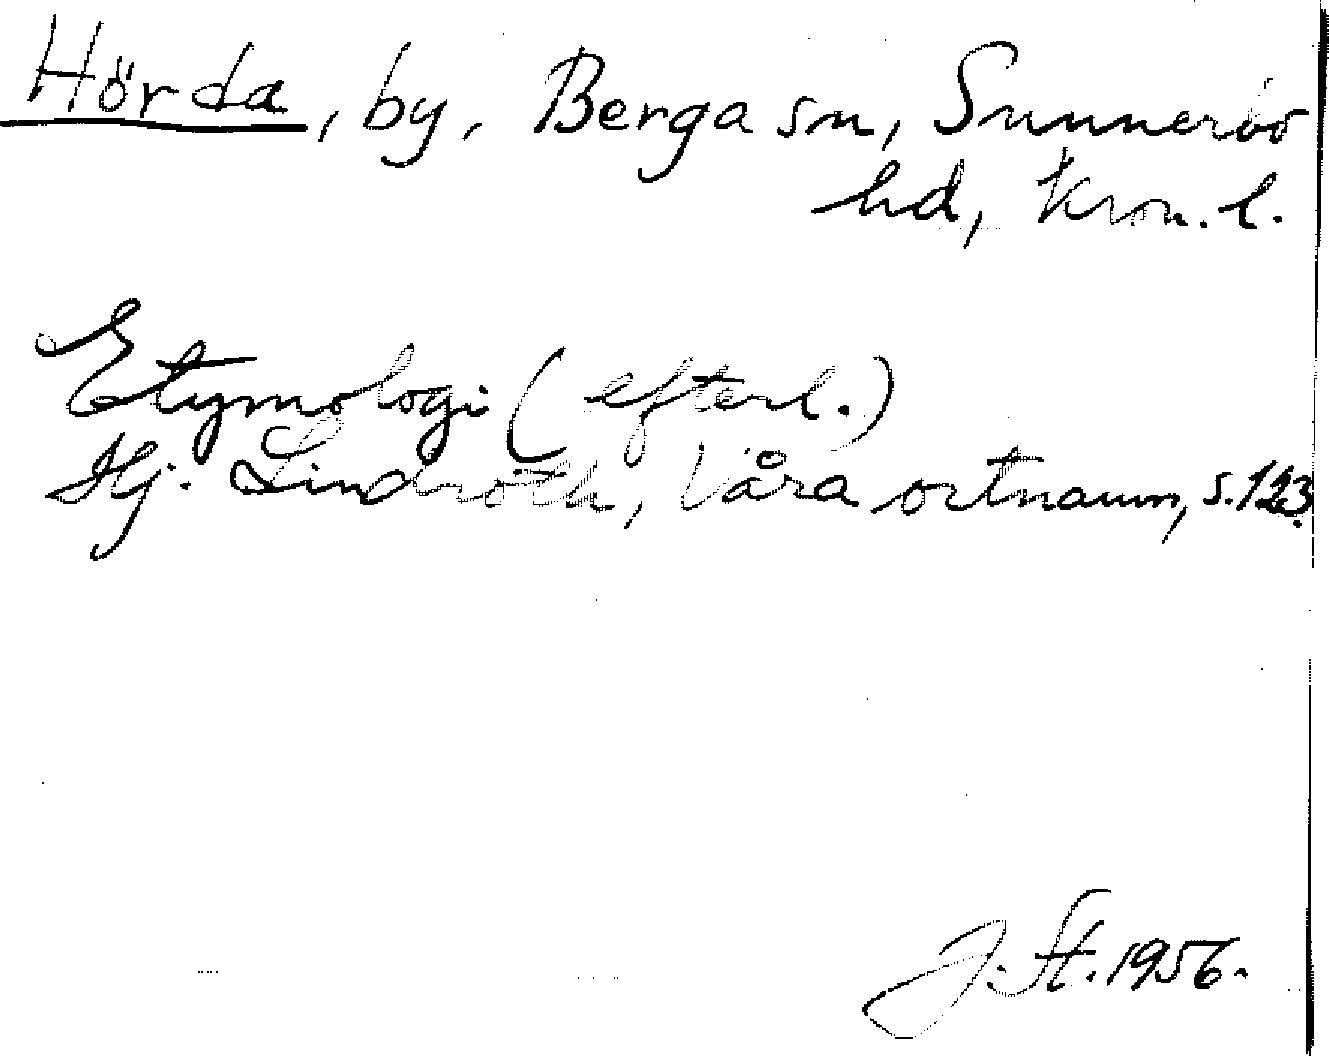 Hörda, by, Berga sn, Sunnerbo
hd, Kron. l.
Etymologi (efterl.)
Hj. Lindroth, Våra ortnamn, s. 123.
J. St. 1956.